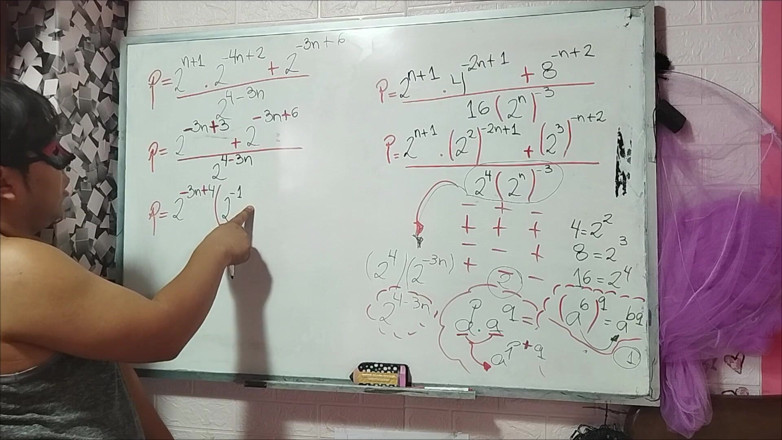 P = 2^{n+1} · 2^{-4n+2} + 2^{-3n+6}
2^{4-3n}
P = 2^{-3n+3} + 2^{-3n+6}
2^{4-3n}
P = 2^{-3n+4} (2^{-1}
P = 2^{n+1} · 4^{-2n+1} + 8^{-n+2}
16 (2^n)^{-3}
P = 2^{n+1} · (2^2)^{-2n+1} + (2^3)^{-n+2}
2^4 (2^n)^{-3}
- + -
+ + +
- - +
+ - -
(2^4)(2^{-3n})
2^{4-3n}
2
a^p · a^q =
a^{p+q}
4 = 2^2
8 = 2^3
16 = 2^4
(a^b)^q = a^{bq}
1